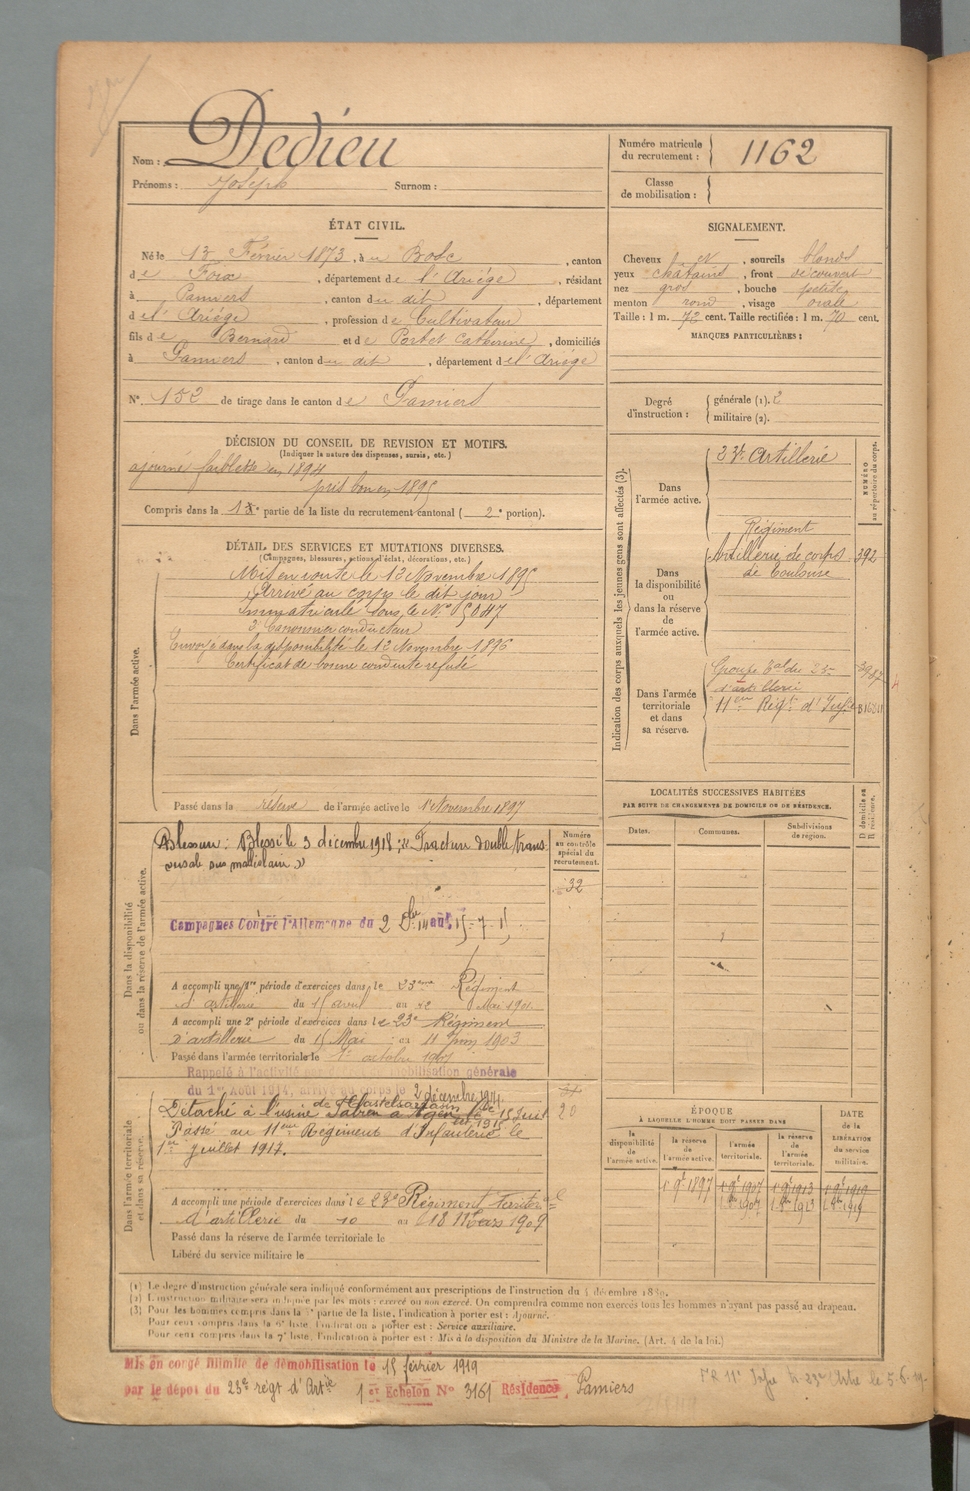 Dedieu
Nom :
Prénoms : Joseph Surnom :
Numéro matricule du recrutement : 1162
Classe de mobilisation :
ÉTAT CIVIL.
Né le 13 Février 1873, à u Bosc, canton
de Foix, département de l'Ariège, résidant
à Pamiers, canton du dit, département
de l'Ariège, profession de Cultivateur
fils de Bernard et de Portet Catherine, domiciliés
à Pamiers, canton du dit, département de l'Ariège
N° 152 de tirage dans le canton de Pamiers
SIGNALEMENT.
Cheveux N, sourcils blonds
yeux chatains, front découvert
nez gros, bouche petite
menton rond, visage ovale
Taille : 1 m. 72 cent. Taille rectifiée : 1 m. 70 cent.
MARQUES PARTICULIÈRES :
Degré d'instruction : générale (1). 2
militaire (2).
DÉCISION DU CONSEIL DE REVISION ET MOTIFS.
(Indiquer la nature des dispenses, sursis, etc.)
ajourné faiblesse en 1894
pris bon en 1895
Compris dans la 1re partie de la liste du recrutement cantonal (2e portion).
DÉTAIL DES SERVICES ET MUTATIONS DIVERSES.
(Campagnes, blessures, actions d'éclat, décorations, etc.)
Dans l'armée active.
Mis en route le 12 Novembre 1895
Arrivé au corps le dit jour
Immatriculé sous le N° 5047
2e Canonnier conducteur
Envoyé dans la disponibilité le 12 Novembre 1896
Certificat de bonne conduite refusé
Passé dans la réserve de l'armée active le 1er Novembre 1897
Indication des corps auxquels les jeunes gens sont affectés (3).
NUMÉRO au répertoire du corps.
Dans l'armée active.
23e Artillerie
Dans la disponibilité ou dans la réserve de l'armée active.
Régiment
Artillerie de corps 392
de Toulouse
Dans l'armée territoriale et dans sa réserve.
Groupe du 23e
d'artillerie
11eme Régt d'Infie
LOCALITÉS SUCCESSIVES HABITÉES
PAR SUITE DE CHANGEMENTS DE DOMICILE OU DE RÉSIDENCE.
Dates.
Communes.
Subdivisions de région.
D domicile ou R résidence.
Dans la disponibilité ou dans la réserve de l'armée active.
Numéro au contrôle spécial du recrutement.
32
Blessure : Blessé le 3 décembre 1918 : « Fracture double trans
versale sus malléolaire »
Campagnes Contre l'Allemagne du 2 Dbre 14 au 15-7-15
A accompli une 1re période d'exercices dans le 23eme Régiment
d'artillerie du 15 avril au 12 Mai 190
A accompli une 2e période d'exercices dans le 23e Régiment
D'artillerie du 15 Mai au 11 Juin 1903
Passé dans l'armée territoriale le 1er octobre 1907
Rappelé à l'activité par décret de mobilisation générale
du 1er Août 1914, arrivé au corps le 2 décembre 1914
Dans l'armée territoriale et dans sa réserve.
de Castelsarrasin
Détaché à l'usine
Passé au 11eme Régiment d'Infanterie le
1er Juillet 1917.
20
A accompli une période d'exercices dans le 23e Régiment Territorial
d'artillerie du 10 au 18 Mars 1909
Passé dans la réserve de l'armée territoriale le
Libéré du service militaire le
ÉPOQUE
À LAQUELLE L'HOMME DOIT PASSER DANS
la disponibilité de l'armée active.
la réserve de l'armée active.
l'armée territoriale.
la réserve de l'armée territoriale.
DATE de la LIBÉRATION du service militaire.
1er 9bre 1897
1er 9bre 1907
1er 9bre 1913
1er 9bre 1919
(1) Le degré d'instruction générale sera indiqué conformément aux prescriptions de l'instruction du 4 décembre 1889.
(2) L'instruction militaire sera indiquée par les mots : exercé ou non exercé. On comprendra comme non exercés tous les hommes n'ayant pas passé au drapeau.
(3) Pour les hommes compris dans la 5e partie de la liste, l'indication à porter est : Ajourné.
Pour ceux compris dans la 6e liste, l'indication à porter est : Service auxiliaire.
Pour ceux compris dans la 7e liste, l'indication à porter est : Mis à la disposition du Ministre de la Marine. (Art. 4 de la loi.)
Mis en congé illimité de démobilisation le 15 février 1919
par le dépôt du 23e régt d'Artie 1er Echelon N° 3161 Résidence, Pamiers